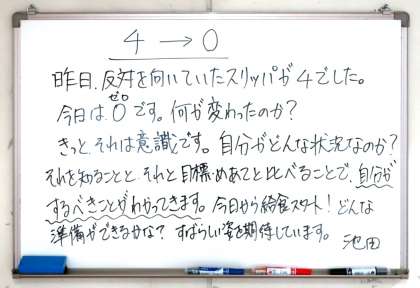 4 → 0
昨日、反対を向いていたスリッパが4でした。
今日は、0です。何が変わったのか？
ゼロ
きっと、それは意識です。自分がどんな状況なのか？
それを知ることと、それと目標・めあてと比べることで、自分が
するべきことがわかってきます。今日から給食スタート！どんな
準備ができるかな？すばらしい姿を期待しています。 池田